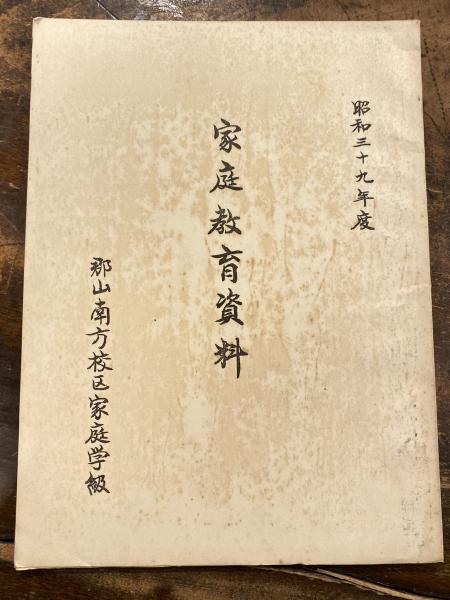 昭和三十九年度
家庭教育資料
郡山南方校区家庭学級